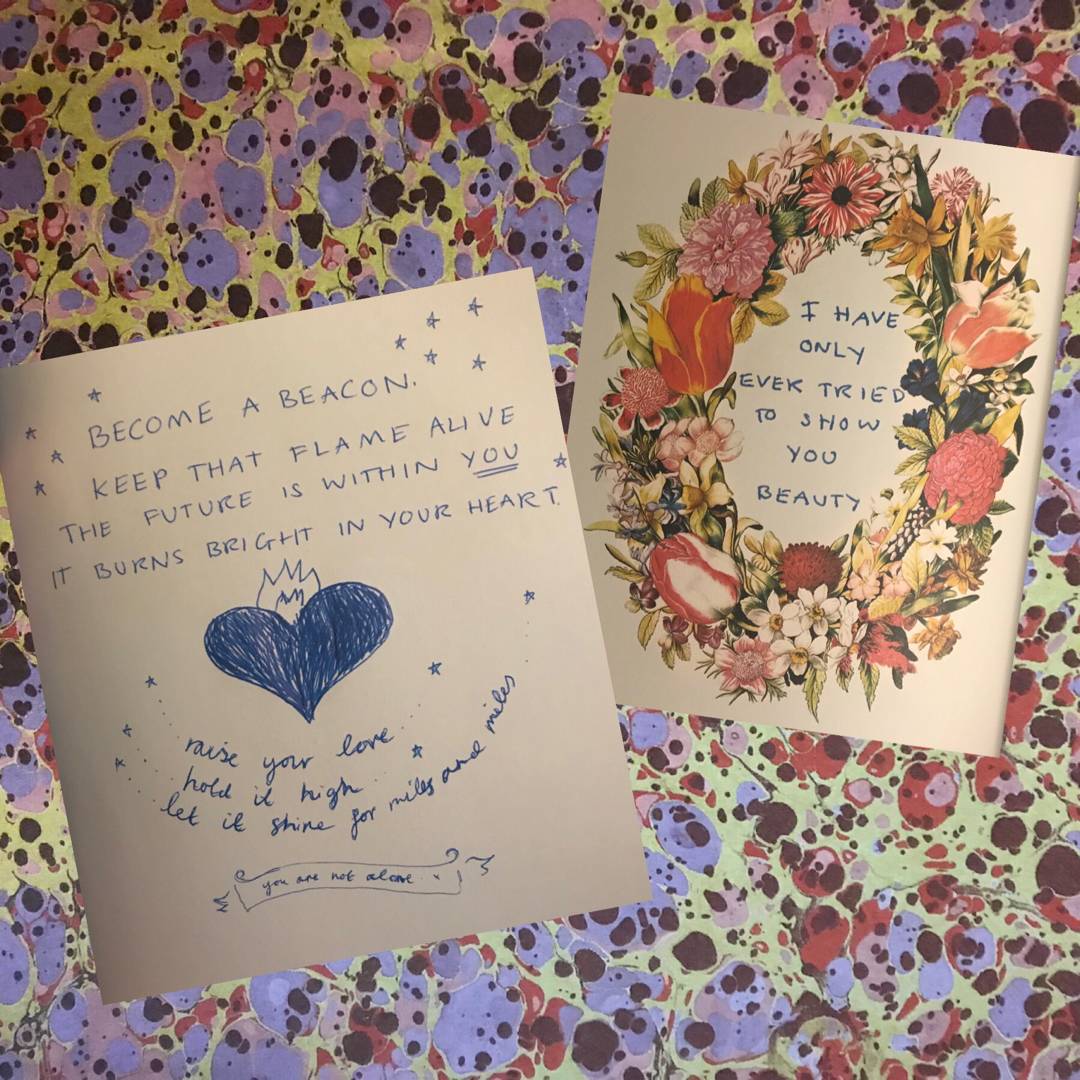 BECOME A BEACON.
KEEP THAT FLAME ALIVE
THE FUTURE IS WITHIN YOU
IT BURNS BRIGHT IN YOUR HEART.
raise your love
hold it high
let it shine for miles and miles
you are not alone. x
I HAVE
ONLY
EVER TRIED
TO SHOW
YOU
BEAUTY